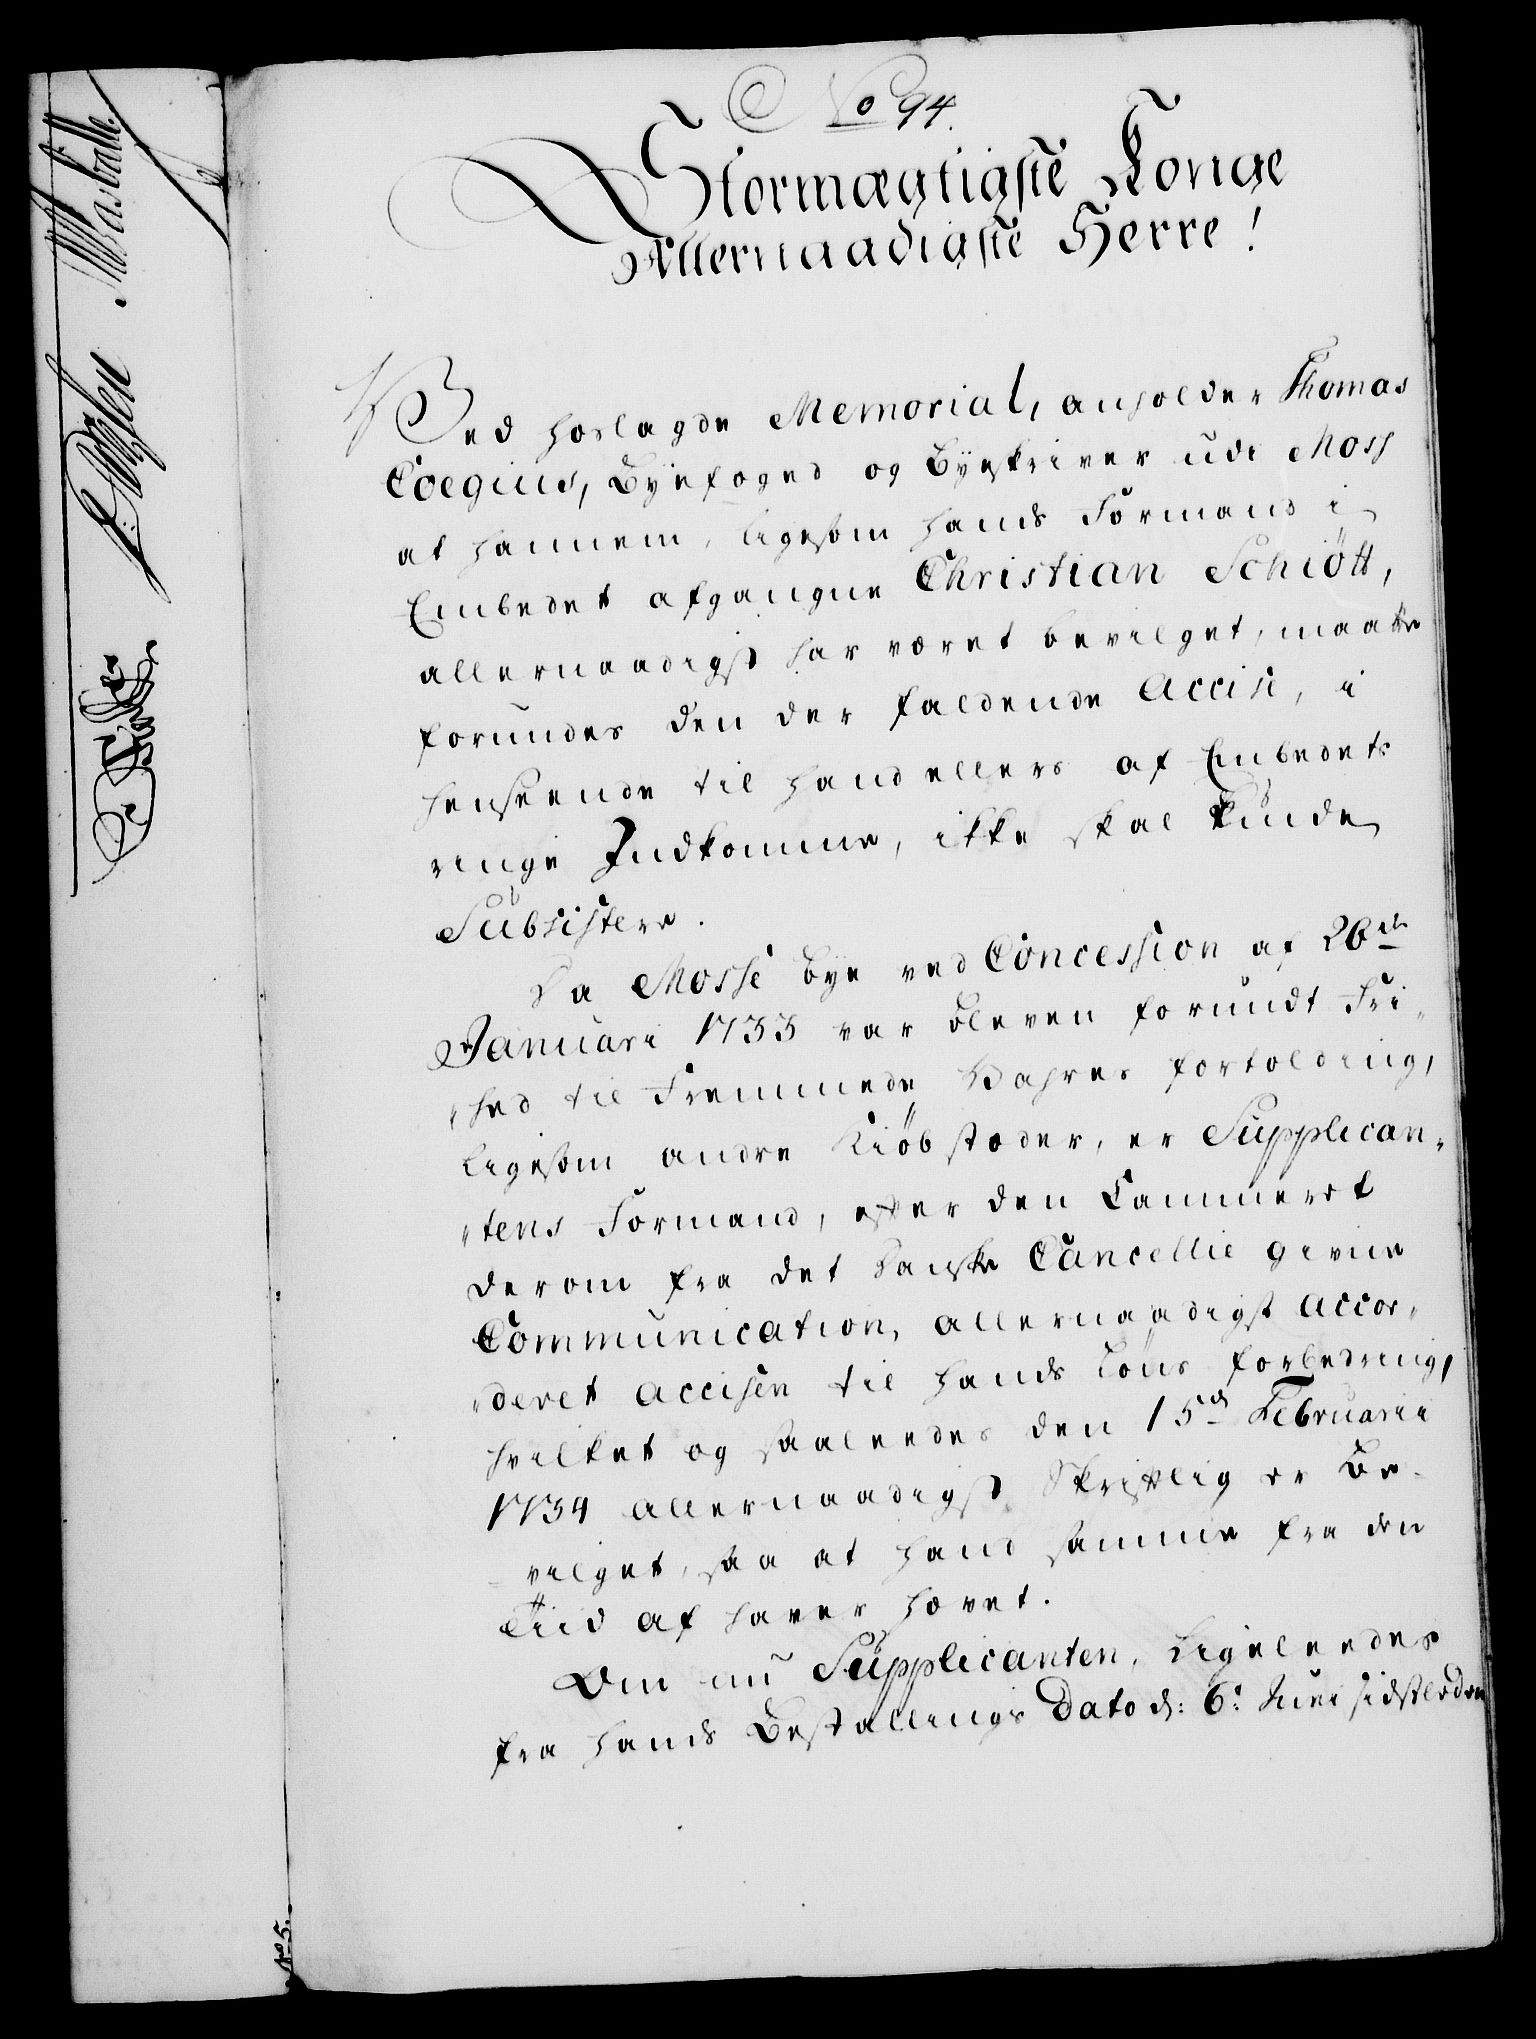 No 94.
Stormægtigste Konge
Allernaadigste Herre!
Ved hoslagde Memorial, anholder Thomas
Coegius, Byefoged og Byeskriver udi Moss
at hannem, ligesom hands Formand i
Embedet afgangne Christian Schiött,
allernaadigst har været bevilget, maatte
forundes den der faldende Accise, i
henseende til hand ellers af Embedets
ringe Indkomme, ikke skal kunde
Subsistere.
Da Mosse bye ved Concession af 26de
Januari 1733 var bleven forundt Fri,,
,,hed til Fremmede Vahres fortolding,
ligesom andre Kiöbstæder, er Supplican,,
,,tens Formand, efter den Cammeret
derom fra det danske Cancellie givne
Communication, allernaadigst accor,,
,,deret Accisen til hands löns forbedring,
hvilket og saaleedes den 15de Februarii
1734 allernaadigst Skriftlig er Be-
-vilget, saa at hand samme fra den
Tiid af haver hævet.
Om nu Supplicanten, ligeleedes
fra hands Bestallings Dato d: 6t Juni sidstleden
No 5.